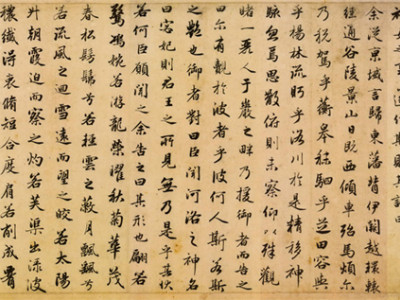 余從京域言歸東藩背伊闕越轘轅
經通谷陵景山日既西傾車殆馬煩尔
乃稅駕乎蘅皋秣駟乎芝田容與
乎楊林流眄乎洛川於是精移神
駭忽焉思散俯則未察仰以殊觀
睹一麗人于巖之畔乃援御者而告之
曰尔有覿於彼者乎彼何人斯若斯
之豔也御者對曰臣聞河洛之神名
曰宓妃則君王之所見無乃是乎其狀
若何臣願聞之余告之曰其形也翩若
驚鴻婉若游龍榮曜秋菊華茂
春松髣髴兮若輕雲之蔽月飄颻兮
若流風之迴雪遠而望之皎若太陽
升朝霞迫而察之灼若芙蕖出淥波
穠纖得衷脩短合度肩若削成